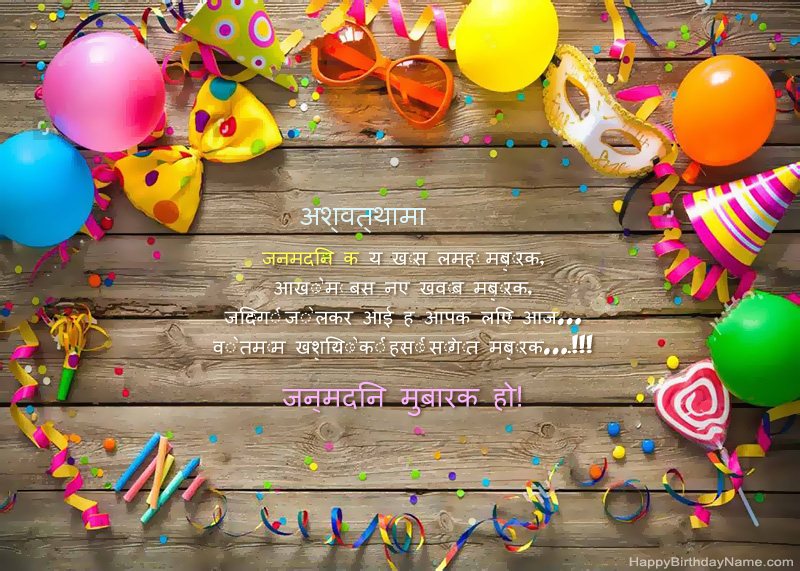 अश्वत्थामा
जनमदिन क य ख़ास लमहा मुबारक,
आँखों में बसे नए ख्वाब मुबारक,
जिंदगी जो लेकर आई है आपके लिए आज...
वो तमाम खुशियों की हसीं सौगात मुबारक...!!!
जन्मदिन मुबारक हो!
HappyBirthdayName.com